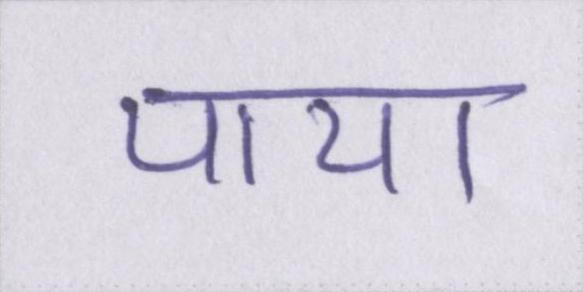 पाया